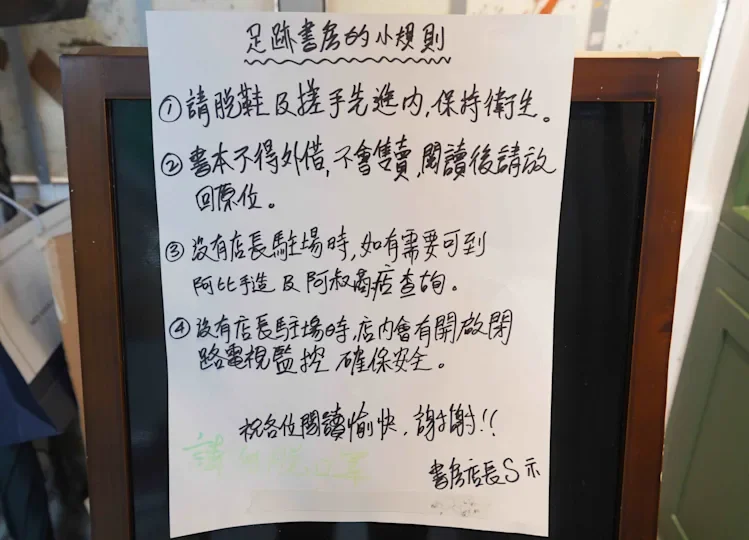 足跡書房的小規則
① 請脫鞋及搓手先進內，保持衛生。
② 書本不得外借，不會售賣，閱讀後請放
回原位。
③ 沒有店長駐場時，如有需要可到
阿比手造及阿叔商店查詢。
④ 沒有店長駐場時，店內會有開啟閉
路電視監控 確保安全。
祝各位閱讀愉快，謝謝!!
請勿除口罩
書房店長S示